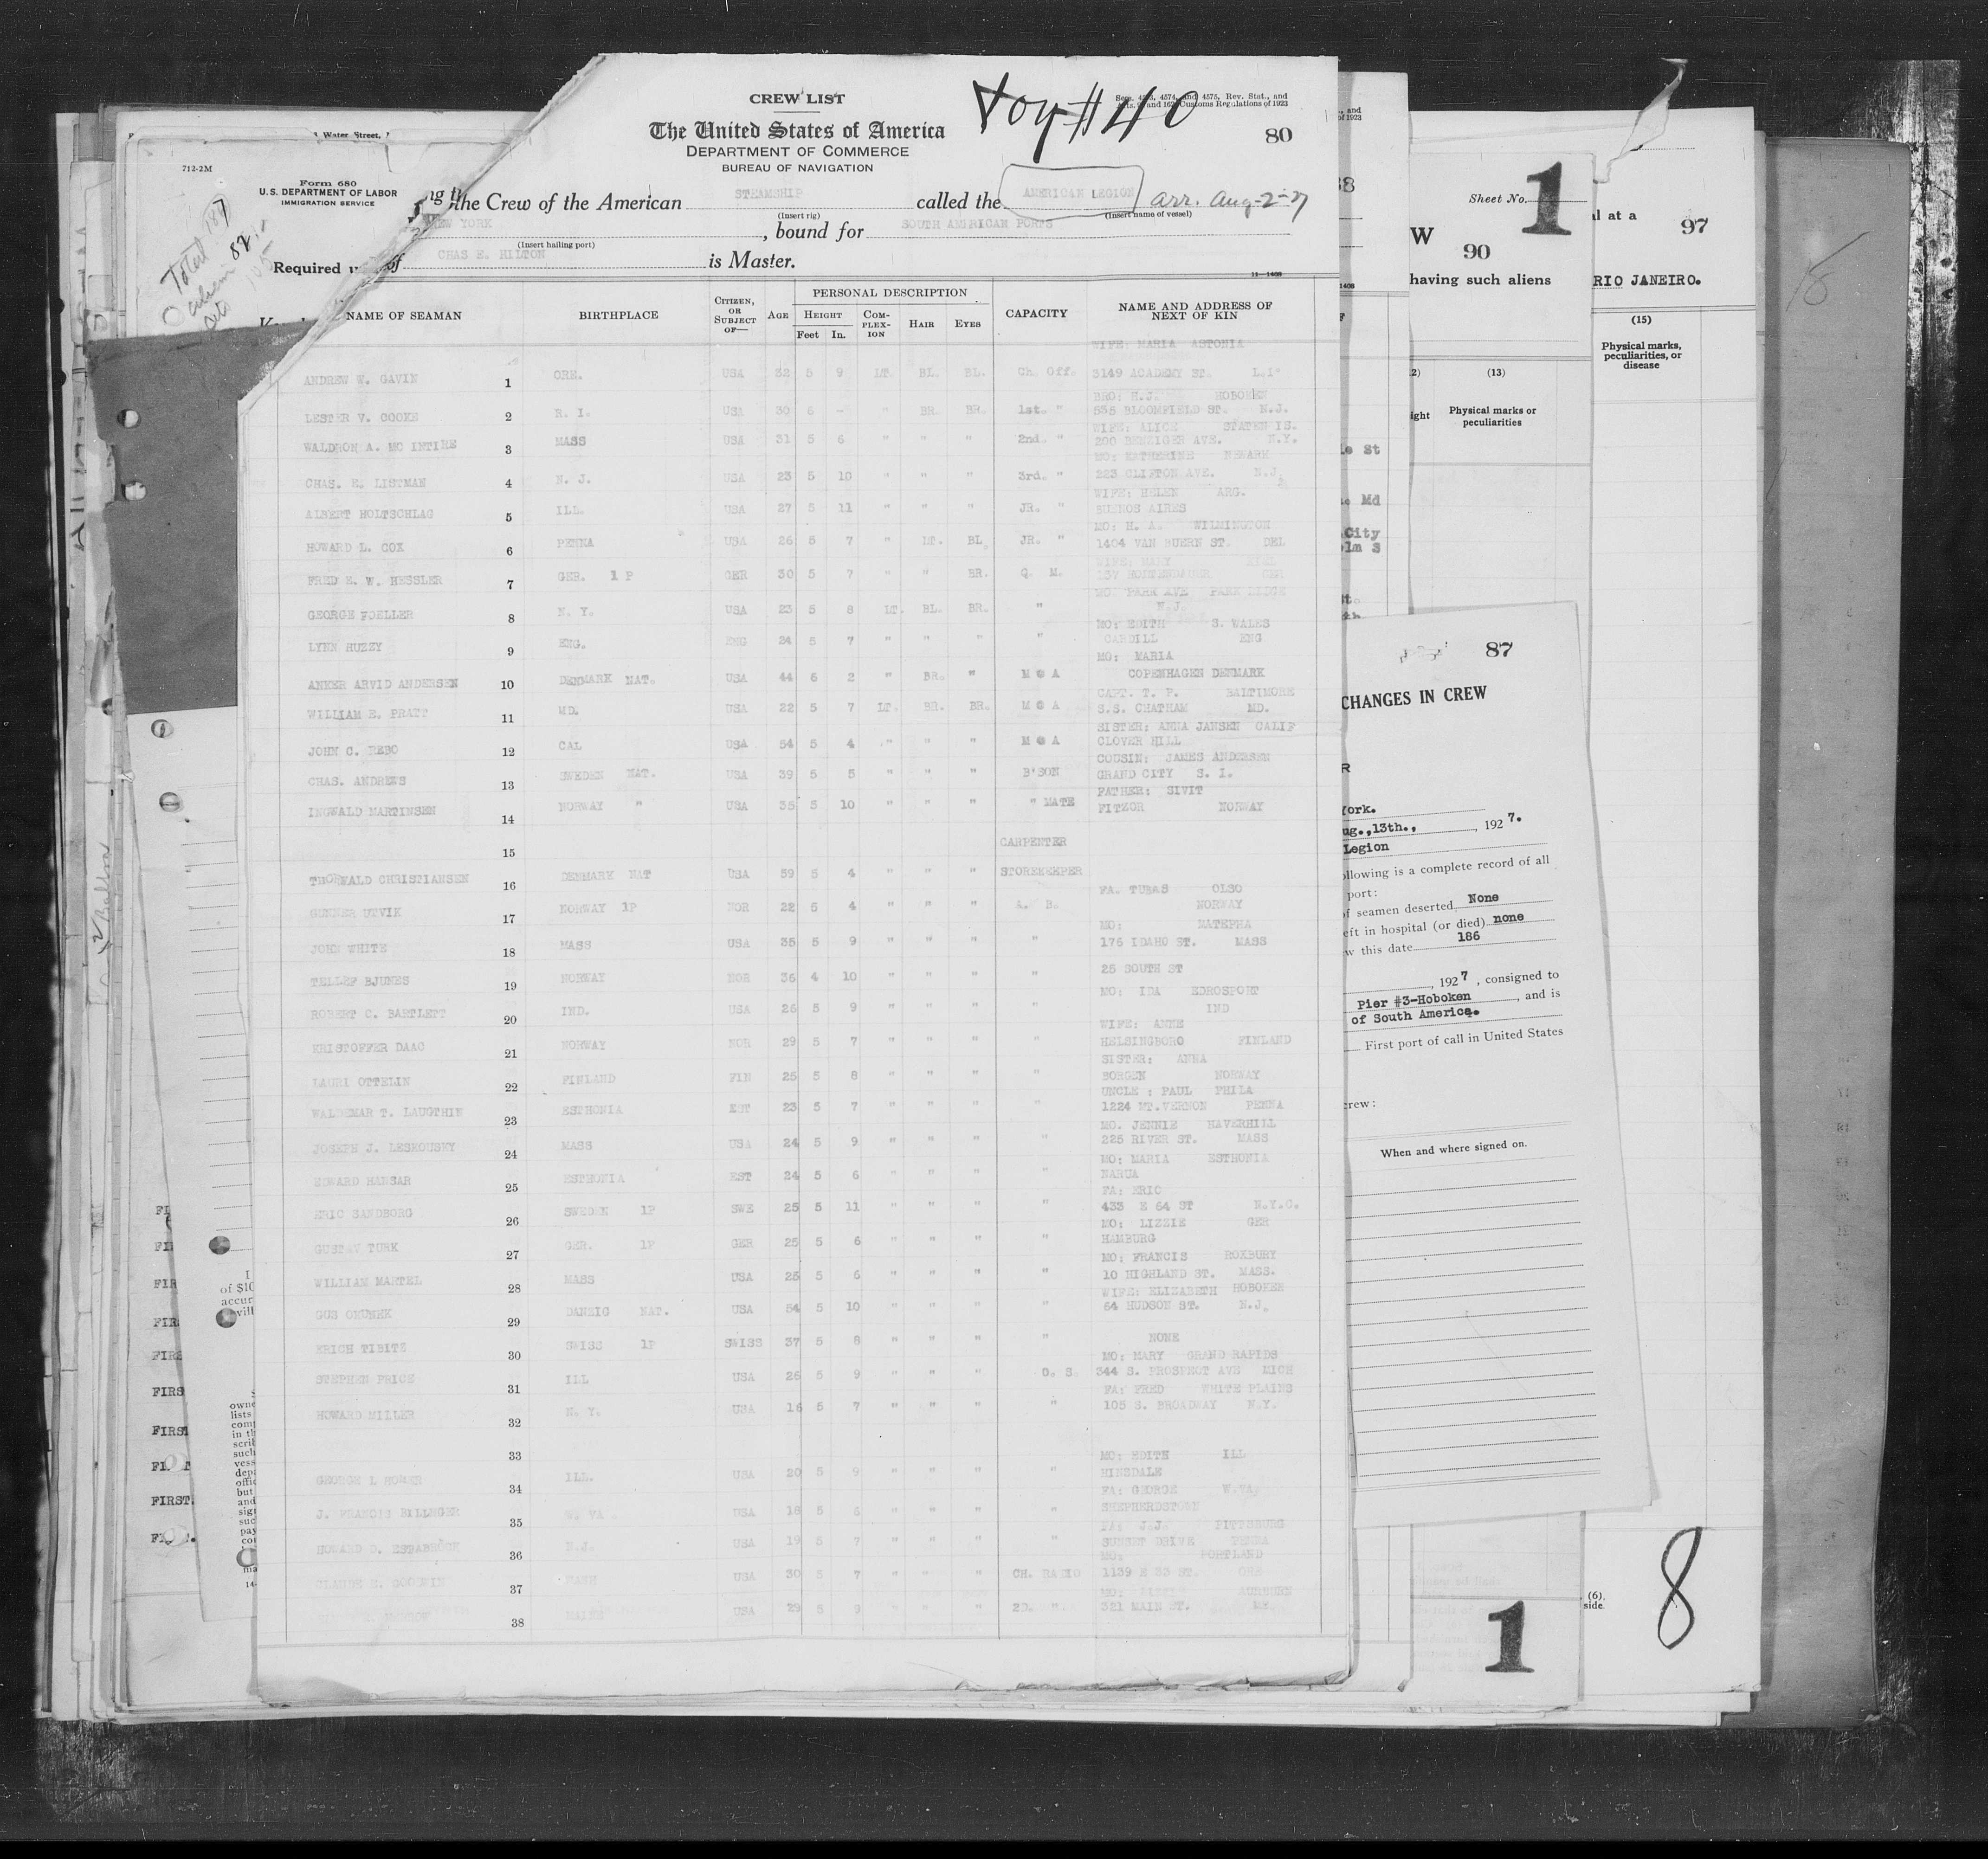 CREW LIST
Voy # 40
Secs. 4573, 4574, and 4575, Rev. Stat., and
Customs Regulations of 1923
80
The United States of America
DEPARTMENT OF COMMERCE
BUREAU OF NAVIGATION
the Crew of the American STEAMSHIP called the AMERICAN LEGION arr. Aug-2-27
(Insert rig) (Insert name of vessel)
NEW YORK, bound for SOUTH AMERICAN PORTS
(Insert hailing port)
of CHAS E. HILTON is Master.
11—1408
NAME OF SEAMAN BIRTHPLACE CITIZEN, OR SUBJECT OF— AGE PERSONAL DESCRIPTION HEIGHT Feet In. COMPLEXION HAIR EYES CAPACITY NAME AND ADDRESS OF NEXT OF KIN
WIFE: MARIA ASTONIA
ANDREW W. GAVIN 1 ORE. USA 32 5 9 LT. BL. BL. Ch. Off. 3149 ACADEMY ST. L.I.
BRO: H.J. HOBOKEN
LESTER V. COOKE 2 R. I. USA 30 6 - " BR. BR. 1st. " 535 BLOOMFIELD ST. N.J.
WIFE: ALICE STATEN IS.
WALDRON A. MC INTIRE 3 MASS USA 31 5 6 " " " 2nd. " 200 BENZIGER AVE. N.Y.
MO: KATHERINE NEWARK
CHAS. E. LISTMAN 4 N. J. USA 23 5 10 " " " 3rd. " 223 CLIFTON AVE. N.J.
WIFE: HELEN ARG.
ALBERT HOLTSCHLAG 5 ILL. USA 27 5 11 " " " JR. " BUENOS AIRES
MO: H. A. WILMINGTON
HOWARD L. COX 6 PENNA USA 26 5 7 " LT. BL. JR. " 1404 VAN BUERN ST. DEL
WIFE: MARY
FRED E. W. HESSLER 7 GER. 1 P GER 30 5 7 " " BR. Q. M. GER
MO: PARK AVE PARK RIDGE
GEORGE FOELLER 8 N. Y. USA 23 5 8 LT. BL. BR. " N.J.
MO: EDITH S. WALES
LYNN HUZZY 9 ENG. ENG 24 5 7 " " " " CARDILL ENG
MO: MARIA
ANKER ARVID ANDERSEN 10 DENMARK NAT. USA 44 6 2 " BR. " M @ A COPENHAGEN DENMARK
CAPT. T. P. BALTIMORE
WILLIAM E. PRATT 11 MD. USA 22 5 7 LT. BR. BR. M @ A S.S. CHATHAM MD.
SISTER: ANNA JANSEN CALIF
JOHN C. REBO 12 CAL USA 54 5 4 " " " M @ A CLOVER HILL
COUSIN: JAMES ANDERSEN
CHAS. ANDREWS 13 SWEDEN NAT. USA 39 5 5 " " " B'SON GRAND CITY S. I.
FATHER: SIVIT
INGWALD MARTINSEN 14 NORWAY " USA 35 5 10 " " " " MATE FITZOR NORWAY
15 CARPENTER
THORWALD CHRISTIANSEN 16 DENMARK NAT USA 59 5 4 " " " STOREKEEPER
FA. TUBAS OLSO
GUNNER UTVIK 17 NORWAY 1P NOR 22 5 4 " " " A. B. NORWAY
MO: MATEPHA
JOHN WHITE 18 MASS USA 35 5 9 " " " " 176 IDAHO ST. MASS
TELLEF BJUNES 19 NORWAY NOR 36 4 10 " " " " 25 SOUTH ST
MO: IDA EDROSPORT
ROBERT C. BARTLETT 20 IND. USA 26 5 9 " " " " IND
WIFE: ANNE
KRISTOFFER DAAC 21 NORWAY NOR 29 5 7 " " " " HELSINGBORO FINLAND
SISTER: ANNA
LAURI OTTELIN 22 FINLAND FIN 25 5 8 " " " " BORGEN NORWAY
UNCLE : PAUL PHILA
WALDEMAR T. LAUGTHIN 23 ESTHONIA EST 23 5 7 " " " " 1224 MT.VERNON PENNA
MO. JENNIE HAVERHILL
JOSEPH J. LESKOUSKY 24 MASS USA 24 5 9 " " " " 225 RIVER ST. MASS
MO: MARIA ESTHONIA
EDWARD HANSAR 25 ESTHONIA EST 24 5 6 " " " " NARUA
FA: ERIC
ERIC SANDBORG 26 SWEDEN 1P SWE 25 5 11 " " " " 433 E 64 ST N.Y.C.
MO: LIZZIE GER
GUSTAV TURK 27 GER. 1P GER 25 5 6 " " " " HAMBURG
MO: FRANCIS ROXBURY
WILLIAM MARTEL 28 MASS USA 25 5 6 " " " " 10 HIGHLAND ST. MASS.
WIFE: ELIZABETH HOBOKEN
GUS ORUNEK 29 DANZIG NAT. USA 54 5 10 " " " " 64 HUDSON ST. N.J.
ERICH TIBITZ 30 SWISS 1P SWISS 37 5 8 " " " " NONE
MO: MARY GRAND RAPIDS
STEPHEN PRICE 31 ILL USA 26 5 9 " " " O. S. 344 S. PROSPECT AVE MICH
FA: FRED WHITE PLAINS
HOWARD MILLER 32 N. Y. USA 16 5 7 " " " " 105 S. BROADWAY N.Y.
33
MO: EDITH ILL
GEORGE L 34 ILL. USA 20 5 9 " " " " HINSDALE
FA: GEORGE W.VA.
J. FRANCIS BILLMEYER 35 W. VA USA 18 5 " " " " SHEPHERDSTOWN
FA: J.J. PITTSBURG
HOWARD D. ESTABROOK 36 N.J. USA 19 5 7 " " " " SUNSET DRIVE PENNA
MO: PORTLAND
37 USA 30 5 7 " " " CH. RADIO 1139 E 33 ST. ORE
MO: AUBURN
38 MAINE USA 29 5 9 " " " 2D. " 321 MAIN ST. ME.
Water Street,
712-2M
Form 680
U.S. DEPARTMENT OF LABOR
IMMIGRATION SERVICE
Total 187
82
Required
FIRST
FIRST.
of $10
accur
will
owne
lists
88
W
90
Sheet No. 1
having such aliens
(13)
Physical marks or
peculiarities
al at a
97
RIO JANEIRO.
(15)
Physical marks,
peculiarities, or
disease
le St
Md
City
lm S
87
CHANGES IN CREW
York.
ug.,13th., , 1927.
Legion
ollowing is a complete record of all
port:
of seamen deserted None
eft in hospital (or died) none
w this date 186
, 1927, consigned to
Pier #3-Hoboken, and is
of South America.
First port of call in United States
crew:
When and where signed on.
(6).
side.
1
8